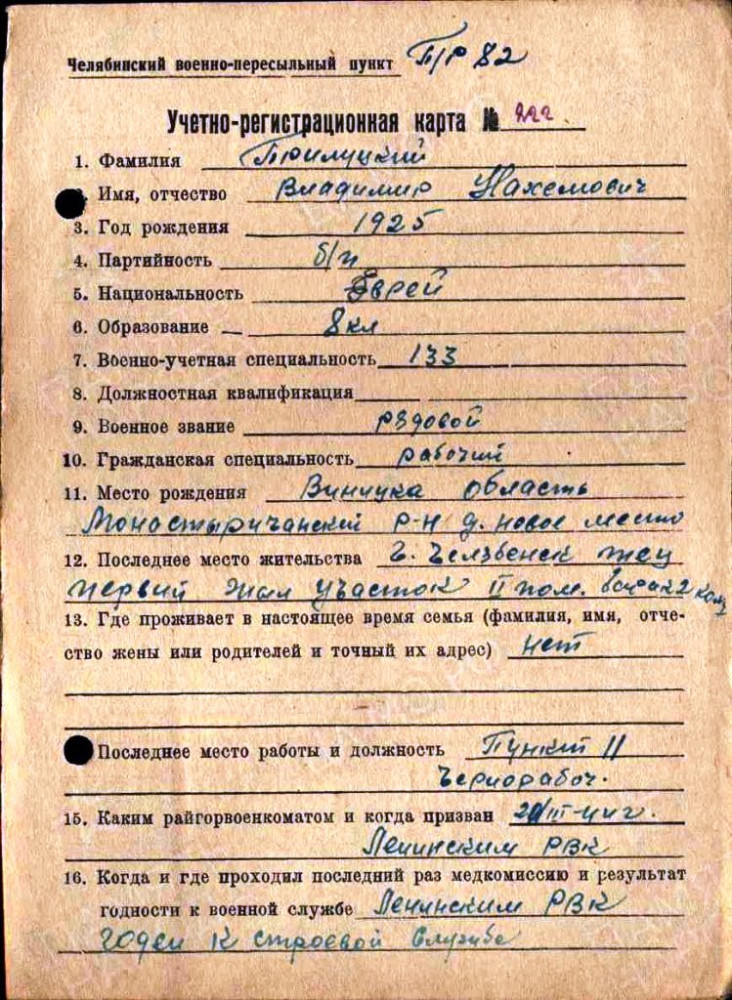 Челябинский военно-пересыльный пункт П/Р 82
Учетно-регистрационная карта №
1. Фамилия Прилуцкий
Имя, отчество Владимир Нахемович
3. Год рождения 1925
4. Партийность б/п
5. Национальность Еврей
6. Образование — 8 кл
7. Военно-учетная специальность 133
8. Должностная квалификация
9. Военное звание рядовой
10. Гражданская специальность рабочий
11. Место рождения Виницка область
Моностыричанский р-н д. новое место
12. Последнее место жительства г. Челябенск
первий Жил участок II пом. барак 2
13. Где проживает в настоящее время семья (фамилия, имя, отче-
ство жены или родителей и точный их адрес) нет
Последнее место работы и должность Пункт 11
Чернорабоч.
15. Каким райгорвоенкоматом и когда призван
Ленинским РВК
16. Когда и где проходил последний раз медкомиссию и результат
годности к военной службе Ленинским РВК
годен к строевой службе